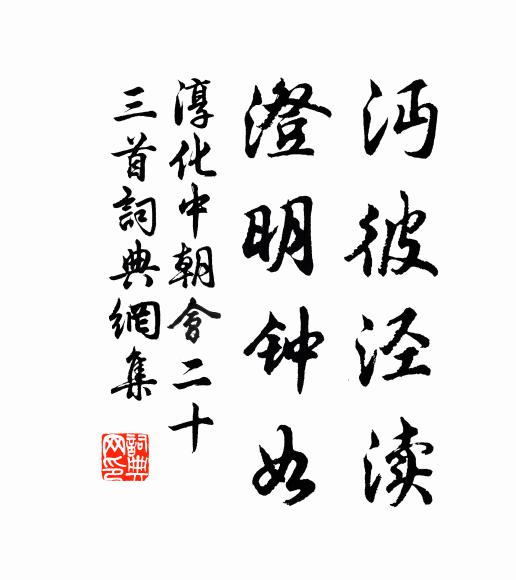 沔彼泾渎
澄明钟如
淳化中朝會二十
三首詞典網集
詞典
网印